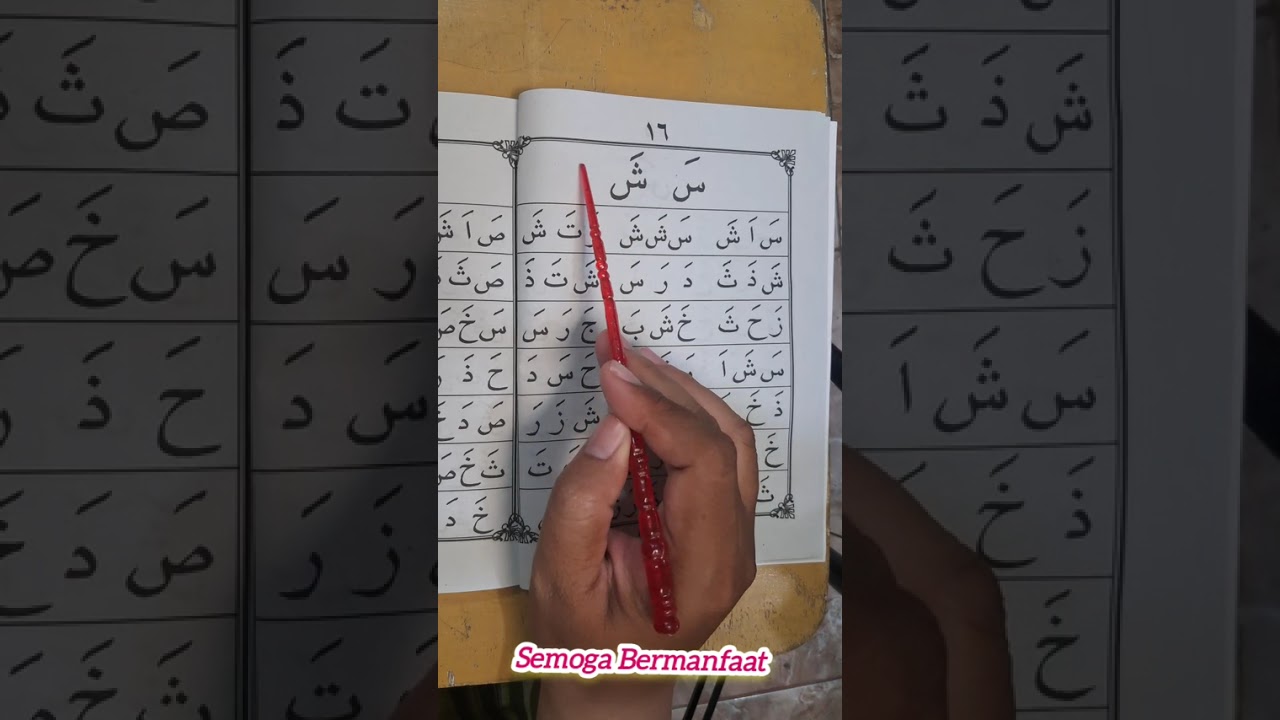 ١٦
سَ شَ
سَ اَ شَ سَ شَ شَ تَ شَ
شَ ذَ ثَ دَ رَ سَ شَ تَ ذَ
زَ حَ ثَ خَ شَ بَ جَ رَ سَ
سَ شَ اَ حَ سَ دَ
ذَ خَ شَ زَ رَ
خَ تَ
ثَ
صَ اَ شَ
صَ ثَ
سَ خَ صَ
حَ ذَ رَ
صَ دَ خَ
ثَ خَ صَ
خَ دَ
Semoga Bermanfaat